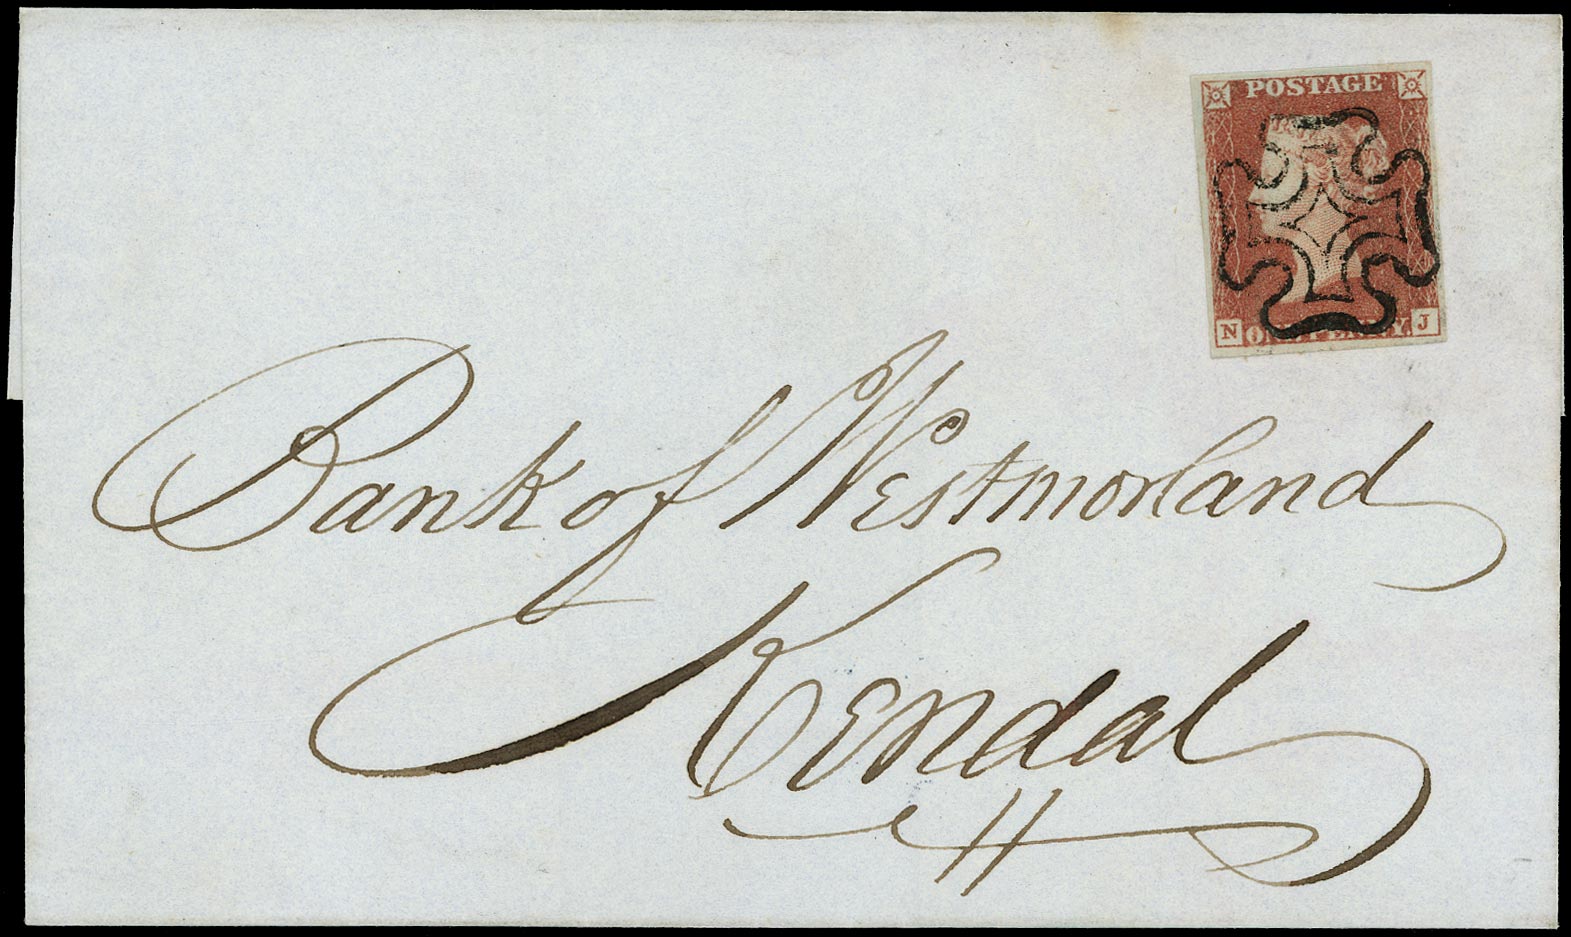 POSTAGE
N ONE PENNY. J
Bank of Westmorland
Kendal